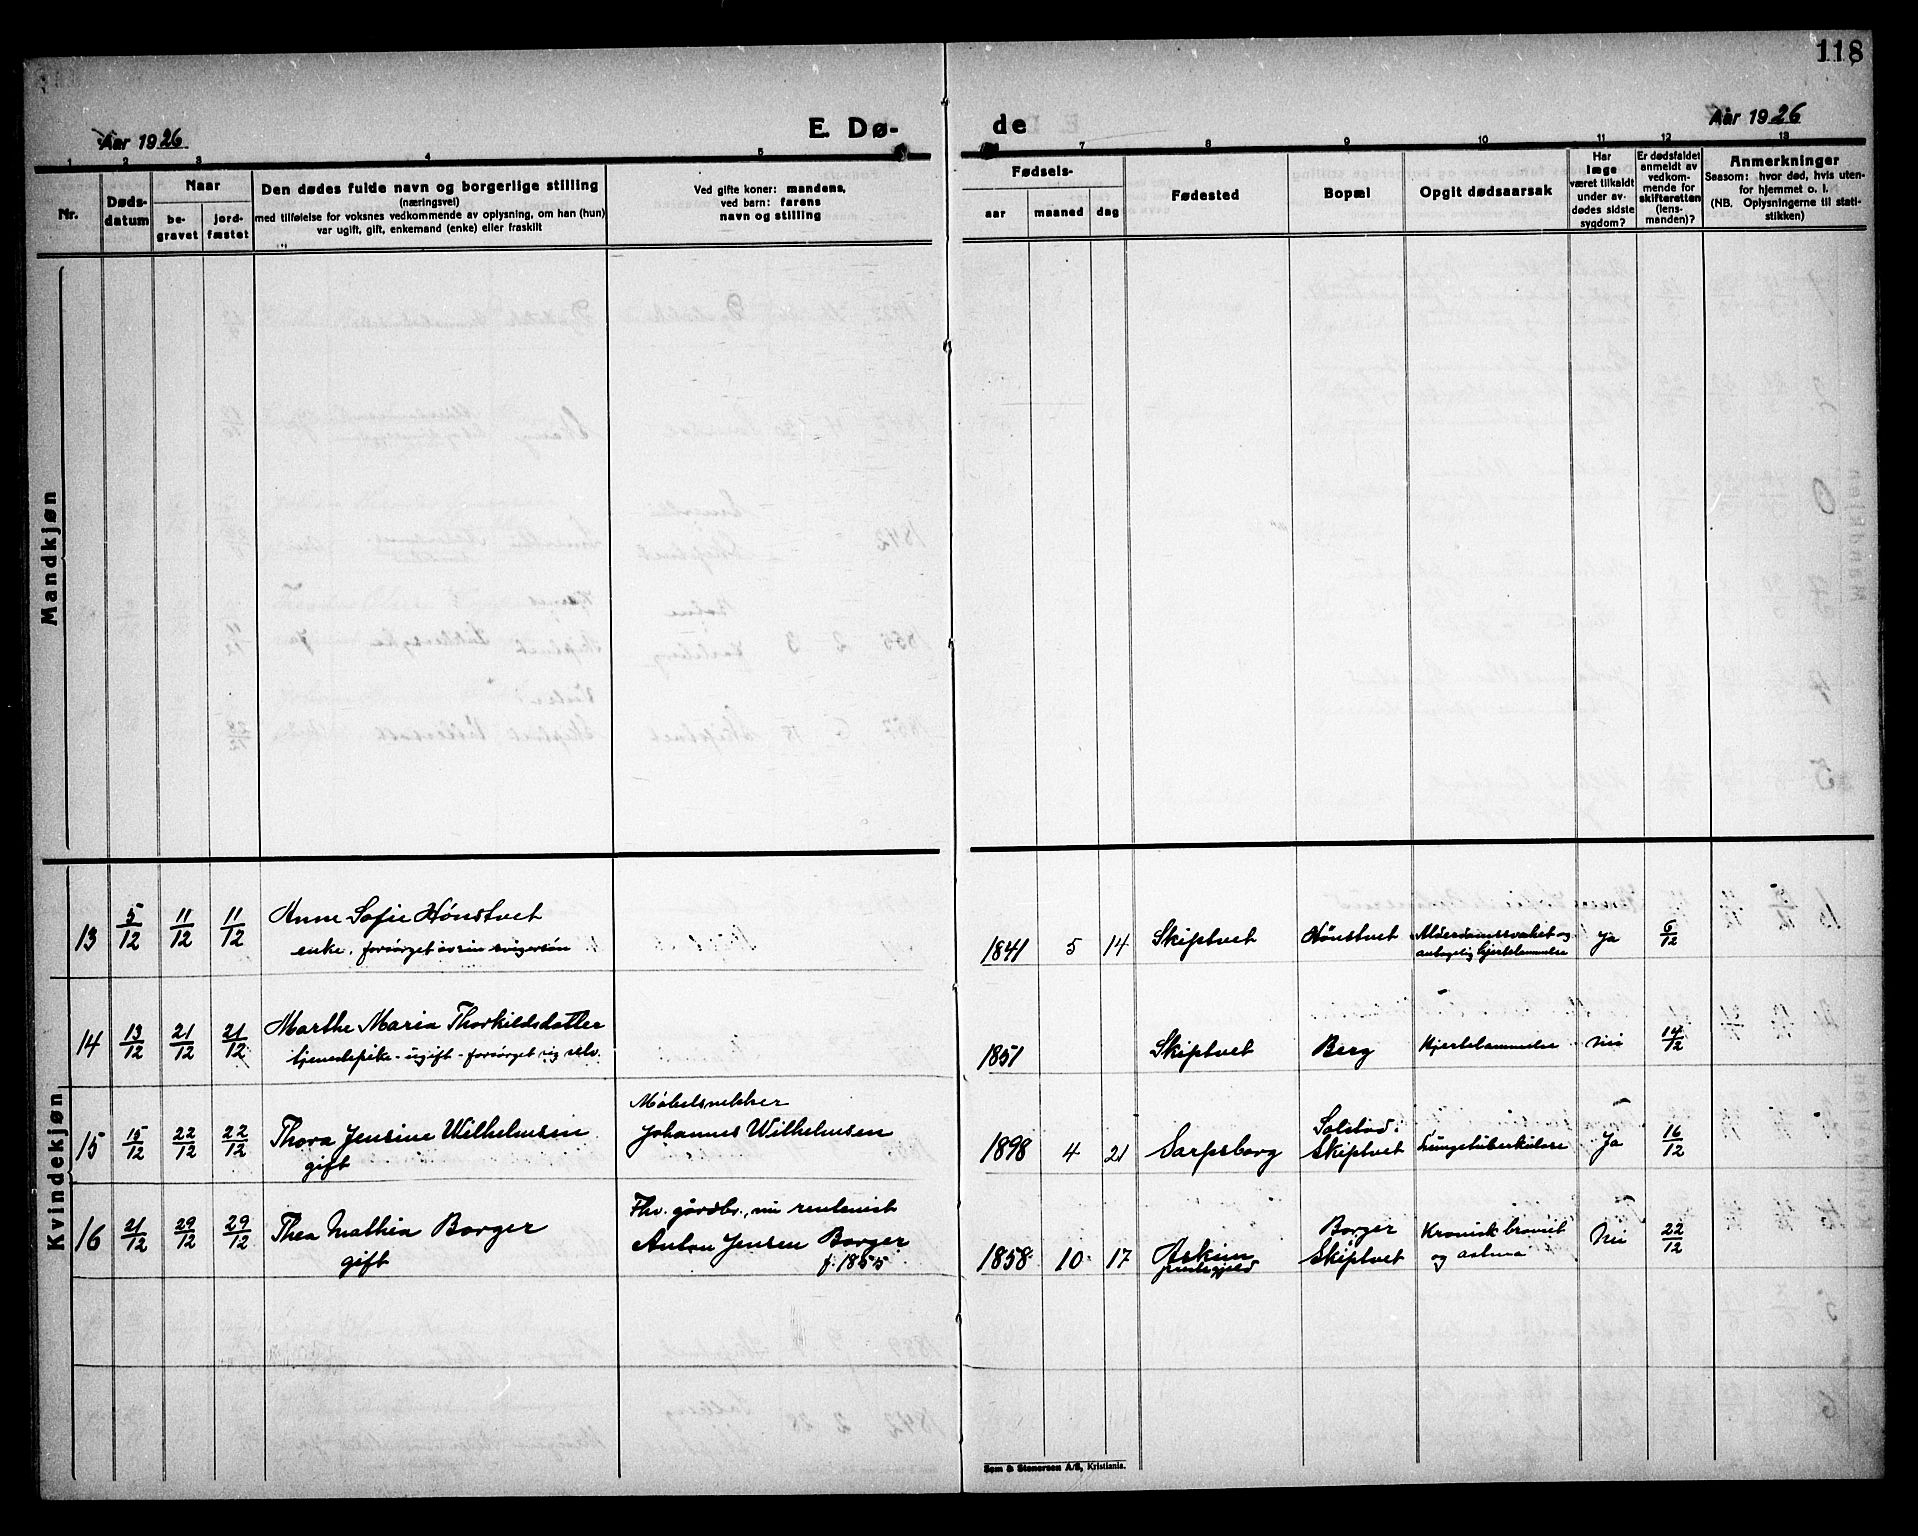 118
Aar 1926
E. Dø-
de
Aar 1926
1 2 3 4 5
7 8 9 10 11 12 13
Nr.
Døds-
datum
Naar
be-
gravet
jord-
fæstet
Den dødes fulde navn og borgerlige stilling
(næringsvei)
med tilføielse for voksnes vedkommende av oplysning, om han (hun)
var ugift, gift, enkemand (enke) eller fraskilt
Ved gifte koner: mandens,
ved barn: farens
navn og stilling
Fødsels-
aar maaned dag
Fødested
Bopæl
Opgit dødsaarsak
Har
læge
været tilkaldt
under av-
dødes sidste
sygdom?
Er dødsfaldet
anmeldt av
vedkom-
mende for
skifteretten
(lens-
manden)?
Anmerkninger
Saasom: hvor død, hvis uten-
for hjemmet o. l.
(NB. Oplysningerne til stati-
stikken)
Mandkjøn
Kvindekjøn
13 5/12 11/12 11/12 Anne Sofie Hønstvet
enke, forsørget av sin svigersøn
1841 5 14 Skiptvet Hønstvet Alderdomssvakhet og
Hjertelammelse Ja 6/12
14 13/12 21/12 21/12 Marthe Maria Thorkildsdatter
tjenestepike - ugift - forsørget sig selv.
1851 Skiptvet Berg Hjertelammelse Nei 14/12
15 15/12 22/12 22/12 Thora Jensine Wilhelmsen
gift
Møbelsnekker
Johannes Wilhelmsen
1898 4 21 Sarpsborg Solstad
Skiptvet Lungetuberkulose Ja 16/12
16 21/12 29/12 29/12 Thea Mathea Borger
gift
Fhv. gårdbr., nu rentenist
Anton Jensen Borger
f. 1855
1858 10 17 Askim
prestegjeld
Borger
Skiptvet
Kronisk bronkit
og astma Nei 22/12
Sem & Stenersen A/S, Kristiania.